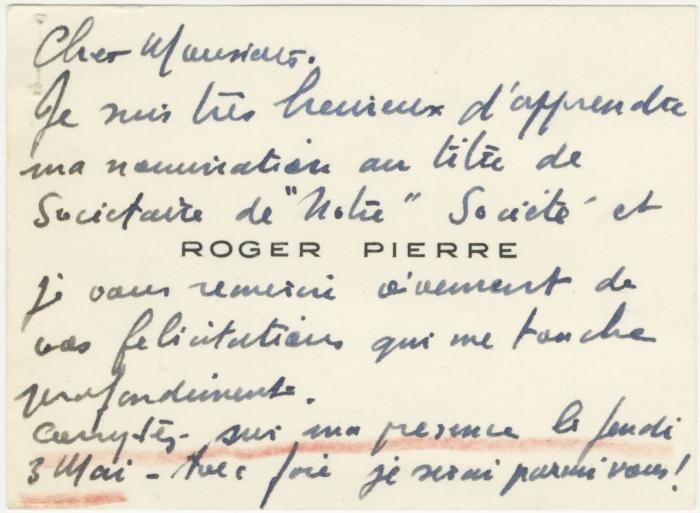 Cher Monsieur.
Je suis très heureux d'apprendre
ma nomination au titre de
Sociétaire de "Notre" Société et
ROGER PIERRE
je vous remercie vivement de
vos felicitations qui me touche
profondément.
Comptez sur ma présence le Jeudi
3 Mai - Avec joie je serai parmi vous!